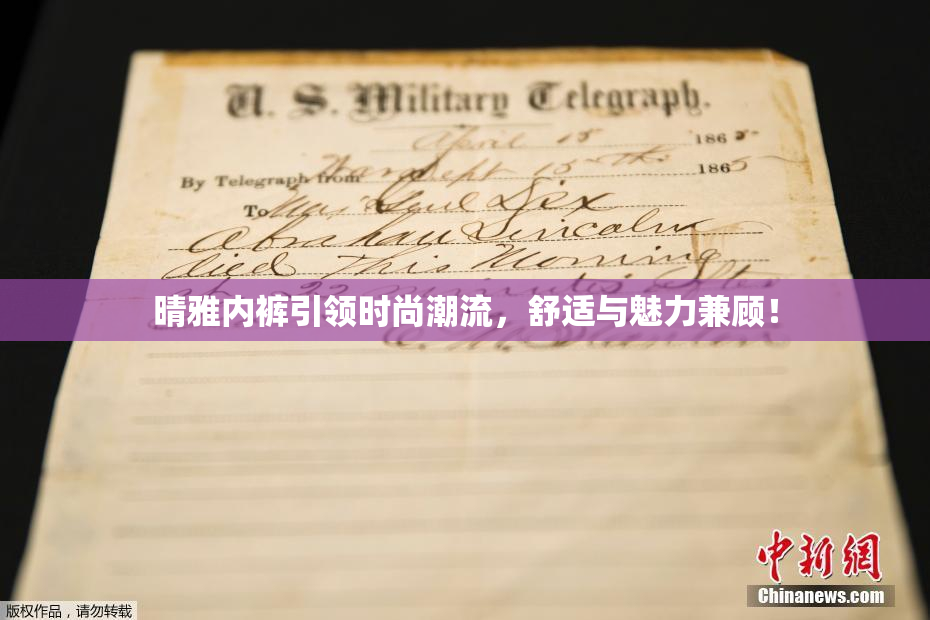 U. S. Military Telegraph.
April 15 1865
By Telegraph from War Dept 15th 1865
To Maj Genl Dix
Abraham Lincoln
died This Morning
at 22 minutes after
晴雅内裤引领时尚潮流，舒适与魅力兼顾！
E. M. Stanton
中新网
Chinanews.com
版权作品，请勿转载